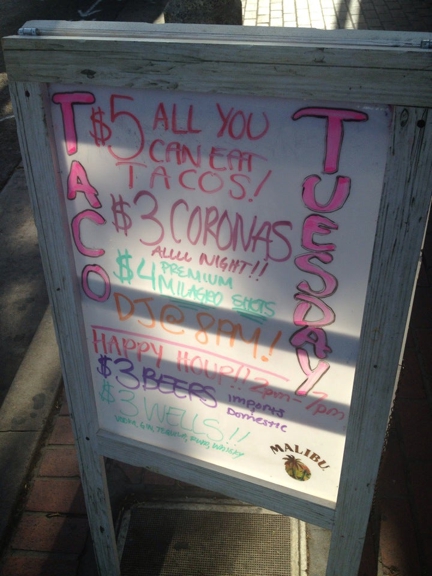 TACO
TUESDAY
$5 ALL YOU
CAN EAT
TACOS!
$3 CORONAS
ALLL NIGHT!!
$4 PREMIUM
MILAGRO SHOTS
DJ @ 8PM!
HAPPY HOUR!! 2pm-7pm
$3 BEERS imports
Domestic
$3 WELLS!!
MALIBU